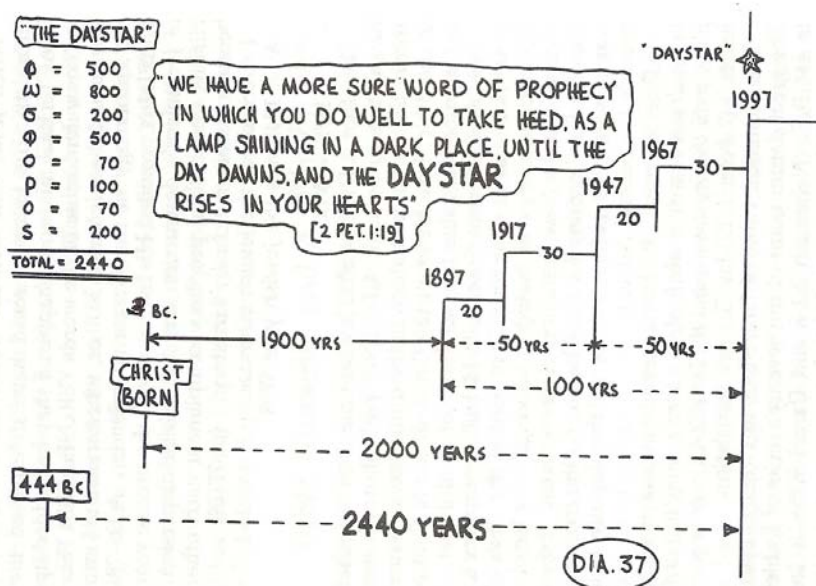 "THE DAYSTAR"
Φ = 500
ω = 800
σ = 200
Φ = 500
O = 70
P = 100
O = 70
S = 200
TOTAL = 2440
"WE HAVE A MORE SURE WORD OF PROPHECY
IN WHICH YOU DO WELL TO TAKE HEED, AS A
LAMP SHINING IN A DARK PLACE, UNTIL THE
DAY DAWNS, AND THE DAYSTAR
RISES IN YOUR HEARTS"
[2 PET. 1:19]
"DAYSTAR"
1997
1967
30
1947
20
1917
30
1897
20
BC.
1900 YRS
50 YRS
50 YRS
CHRIST
BORN
100 YRS
2000 YEARS
444 BC
2440 YEARS
DIA. 37